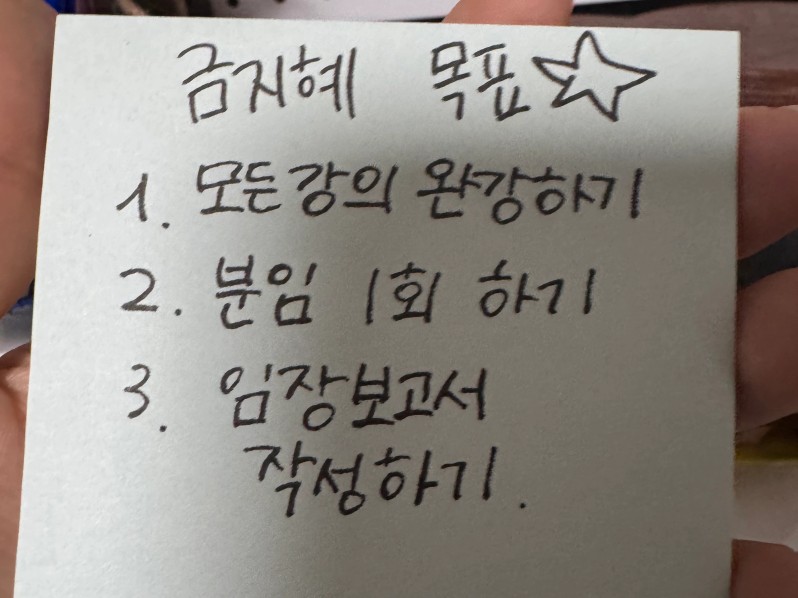 금지혜 목표☆
1. 모든강의 완강하기
2. 분임 1회 하기
3. 임장보고서
작성하기.